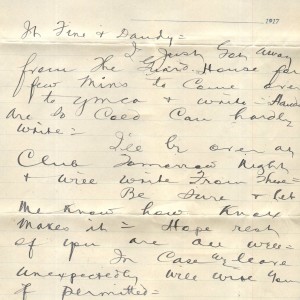 1917
Fine & Dandy =
I Just Got Away
from The Guard House for
few Mins to Come over
to YMCA & write - Hands
are so Cold Can hardly
write =
I'll be over at
Club Tomorrow Night
& will write From There =
Be Sure & let
Me Know how Knox
Makes it = Hope rest
of you are all well =
In Case of leave
unexpectedly will wire you
if permitted =